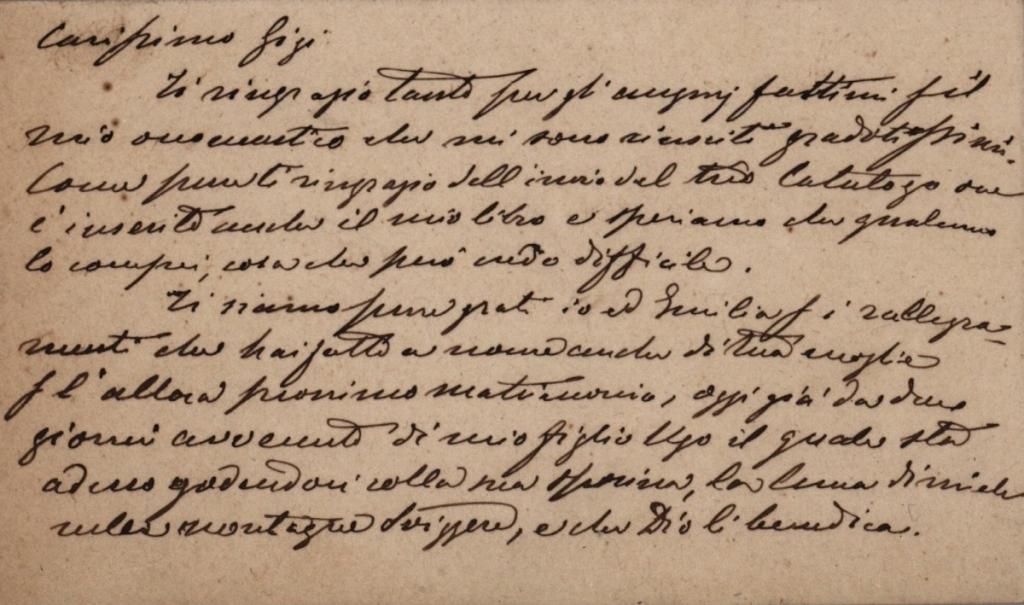 Carissimo Gigi
Ti ringrazio tanto per gli augurj fattimi p il
mio onomastico che mi sono riusciti graditissimi.
Come pure ti ringrazio dell'invio del tuo Catalogo ove
è inserito anche il mio libro e speriamo che qualcuno
lo compri, cosa che però credo difficile.
Ti siamo pure grati io ed Emilia p i rallegra-
menti che hai fatto a nome anche di tua moglie
p l'allora prossimo matrimonio, oggi già da due
giorni avvenuto di mio figlio Ugo il quale sta
adesso godendosi colla sua sposina, la luna di miele
nelle montagne Svizzere, e che Dio li benedica.